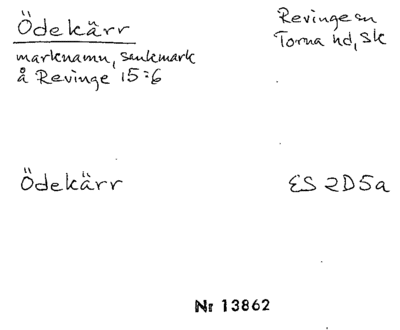 Ödekärr
Revinge sn
Torna hd, Sk
marknamn, sankmark
å Revinge 15:6
Ödekärr
ES 2D5a
Nr 13862